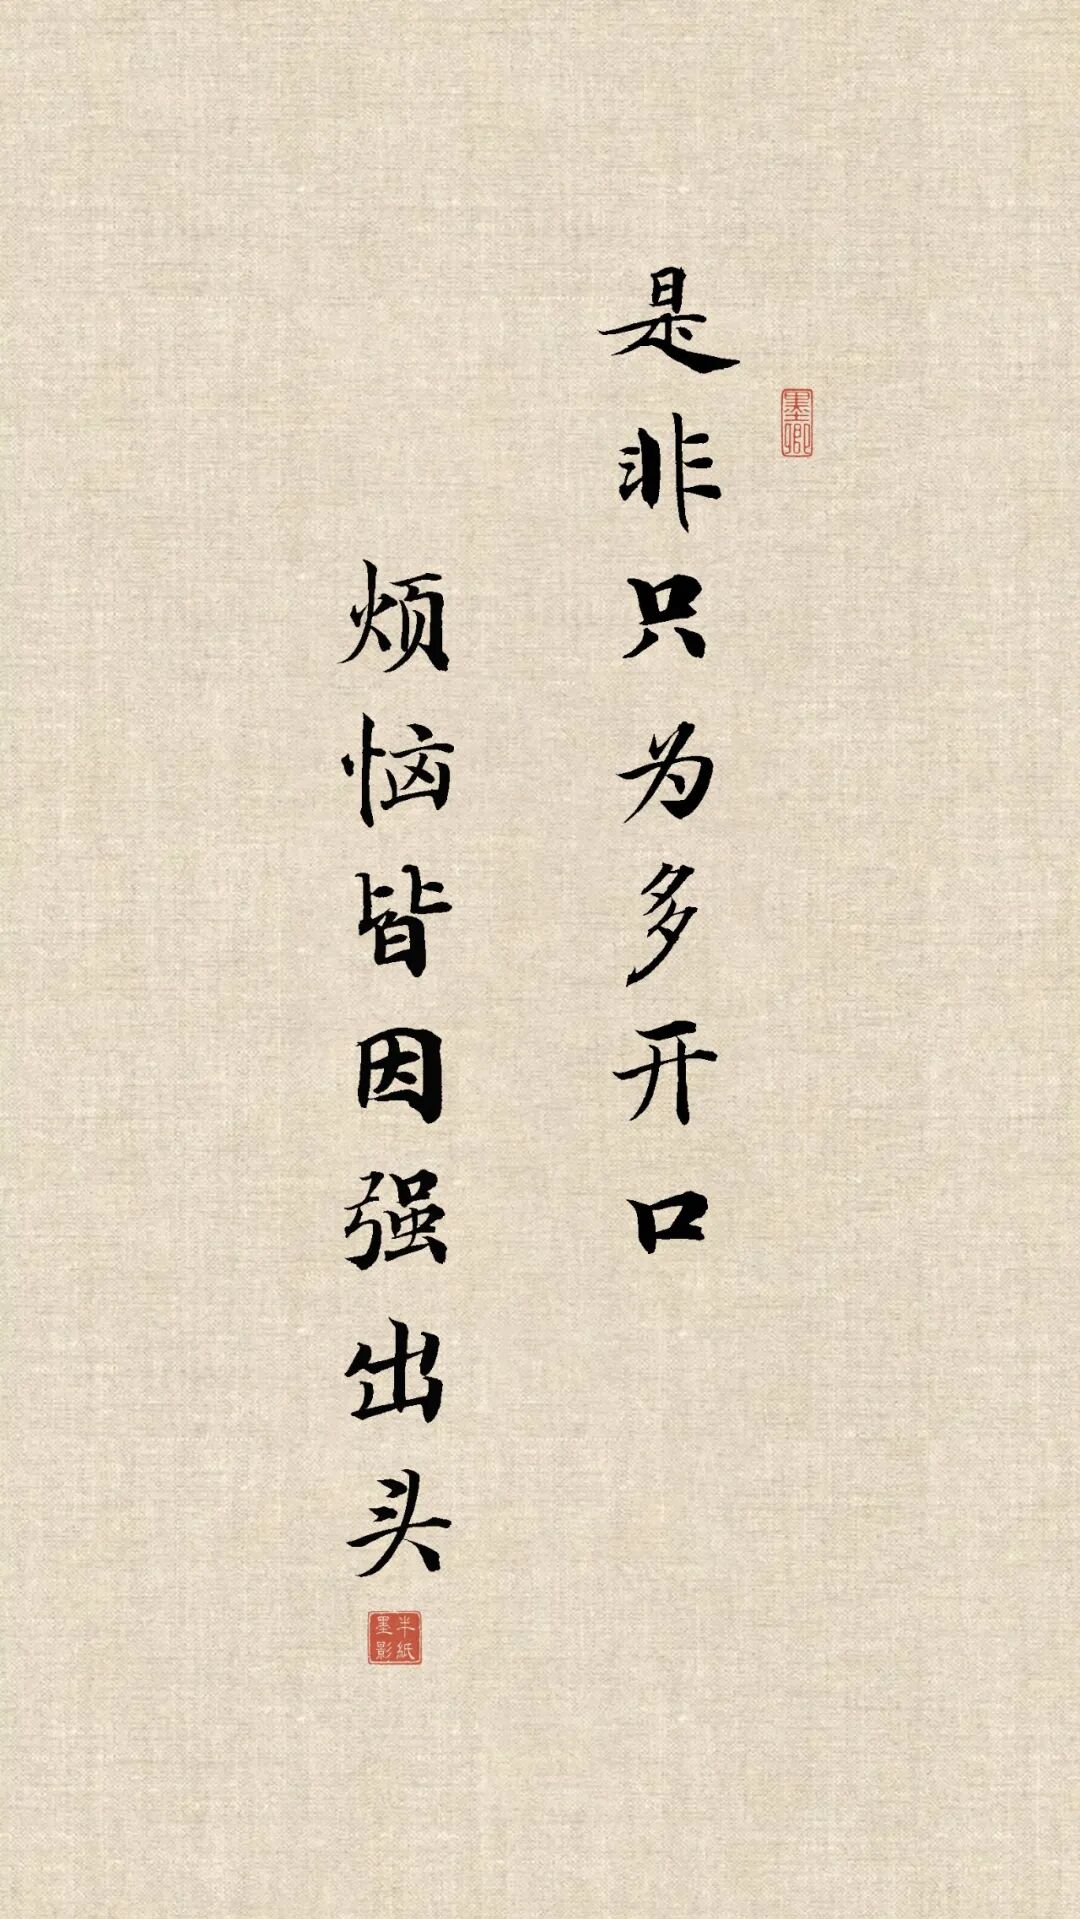 是非只为多开口
烦恼皆因强出头
墨卿
半紙
墨影